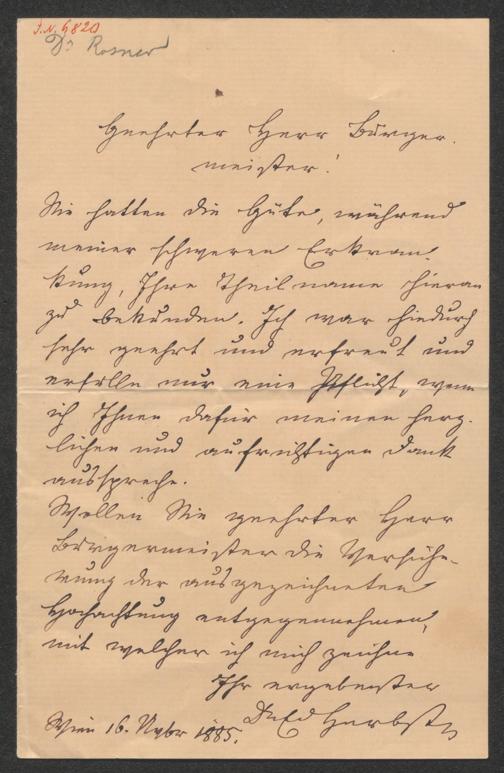 I.N. 9820
Dr Rosner
Geehrter Herr Bürger-
meister!
Sie hatten die Güte, während
meiner schweren Erkran-
kung, Ihre Theilname hieran
zu bekunden. Ich war hiedurch
sehr geehrt und erfreut und
erfülle nur eine Pflicht, wenn
ich Ihnen dafür meinen herz-
lichen und aufrichtigen Dank
ausspreche.
Wollen Sie geehrter Herr
Bürgermeister die Versiche-
rung der ausgezeichneten
Hochachtung entgegennehmen,
mit welcher ich mich zeichne
Ihr ergebenster
Dr Ed Herbst
Wien 16. Nvbr 1885.